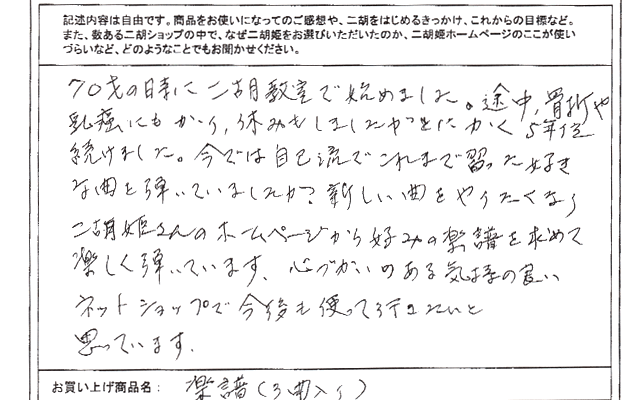 記述内容は自由です。商品をお使いになってのご感想や、二胡をはじめるきっかけ、これからの目標など。
また、数ある二胡ショップの中で、なぜ二胡姫をお選びいただいたのか、二胡姫ホームページのここが使い
づらいなど、どのようなことでもお聞かせください。
70才の時に二胡教室で始めました。途中、骨折や
乳癌にもかかり、休みもしましたがとにかく5年位
続けました。今では自己流でこれまで習った好き
な曲を弾いていましたが、新しい曲をやりたくなり
二胡姫さんのホームページから好みの楽譜を求めて
楽しく弾いています。心づかいのある気持の良い
ネットショップで今後も使って行きたいと
思っています。
お買い上げ商品名： 楽譜(3曲入り)